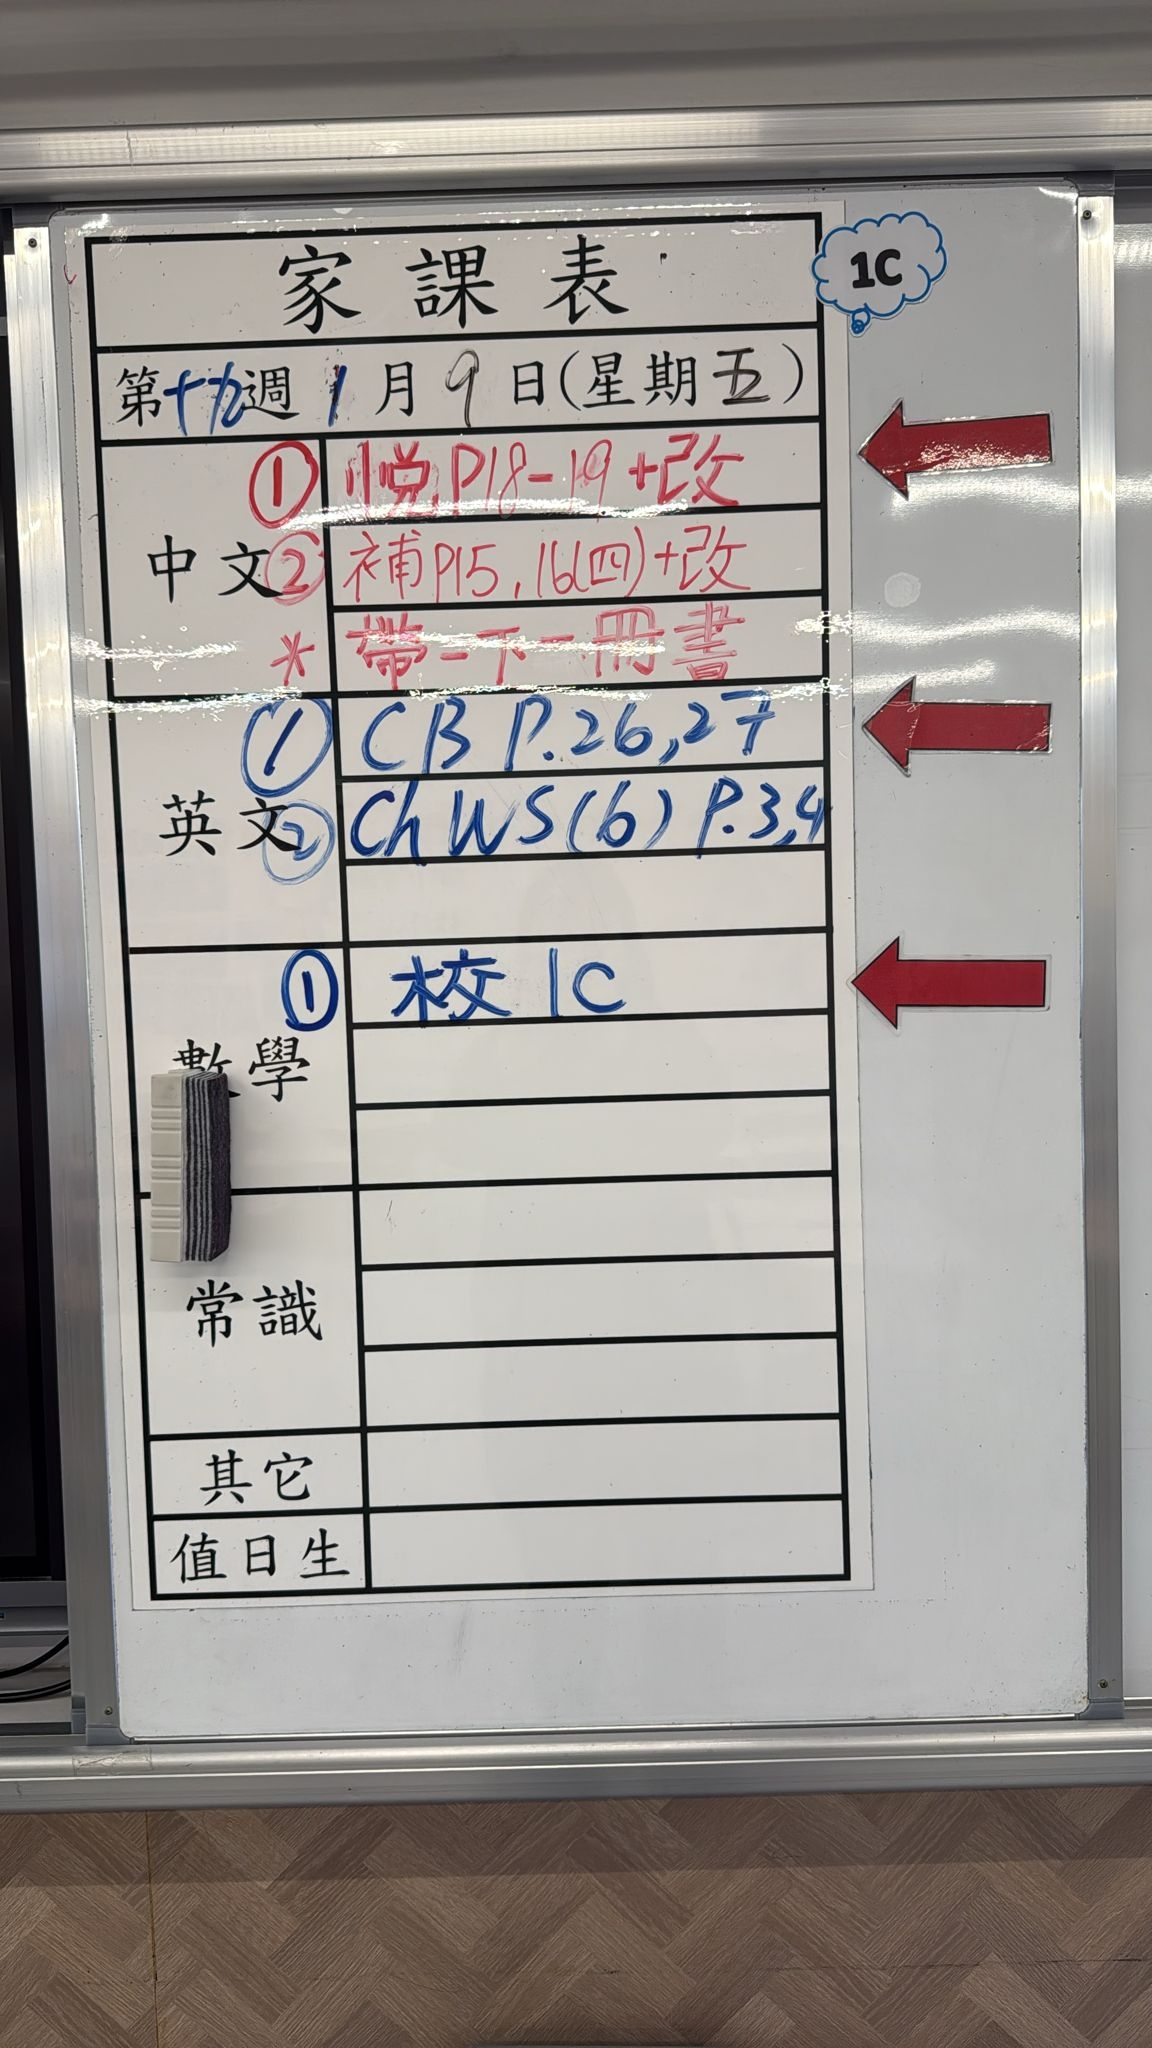 家課表
1C
第十九週 1月9日(星期五)
中文
① 悅P18-19+改
② 補P15,16(四)+改
* 帶一下一冊書
英文
① CB P.26,27
② Ch WS(6) P.3,4
數學
① 校 1C
常識
其它
值日生